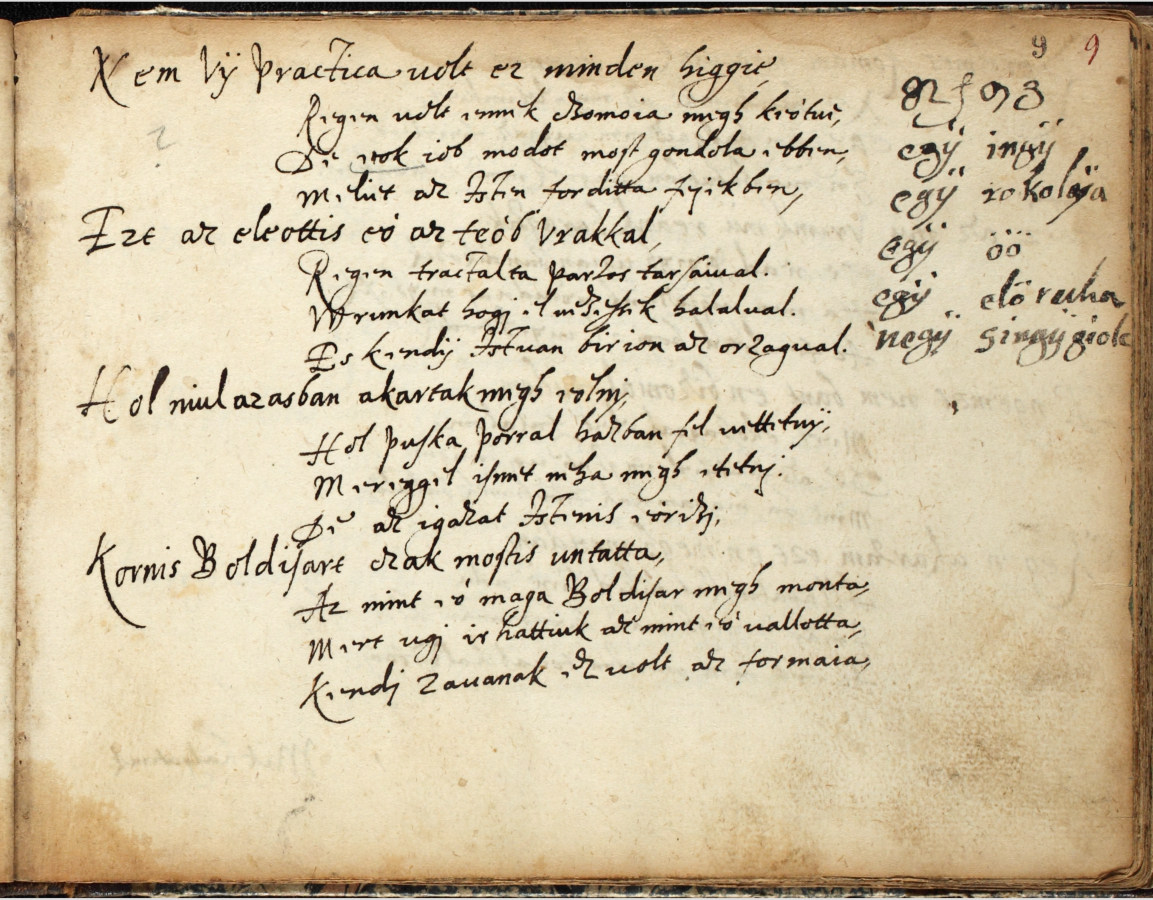 9 9
Nem Vÿ practica uolt ez minden higgie,
Regen uolt ennek czomoia megh kiötue,
De iob modot most gondola ebben,
Meliet az Isten forditta feiekben,
Ezt az eleottis eö az teöb Vrakkal,
Regen tractalta partos tarsaiual.
Vrunkat hogj el uezessék halalual.
Es Kendÿ Istuan birion az orzagual.
Hol niulazasban akartak megh eölnj,
Hol puska porral hazban fel uettetnÿ,
Mereggel ismet neha megh etetnj.
De az igazat Istenis eörizj,
Kornis Boldisart czak mostis untatta,
Az mint eö maga Boldisar megh monta,
Mert ugj irhattiuk az mint eö uallotta,
Kendj zauanak ez volt az formaia,
egÿ ingÿ
egÿ rokolÿa
egÿ öö
egÿ elö ruha
negÿ singÿ